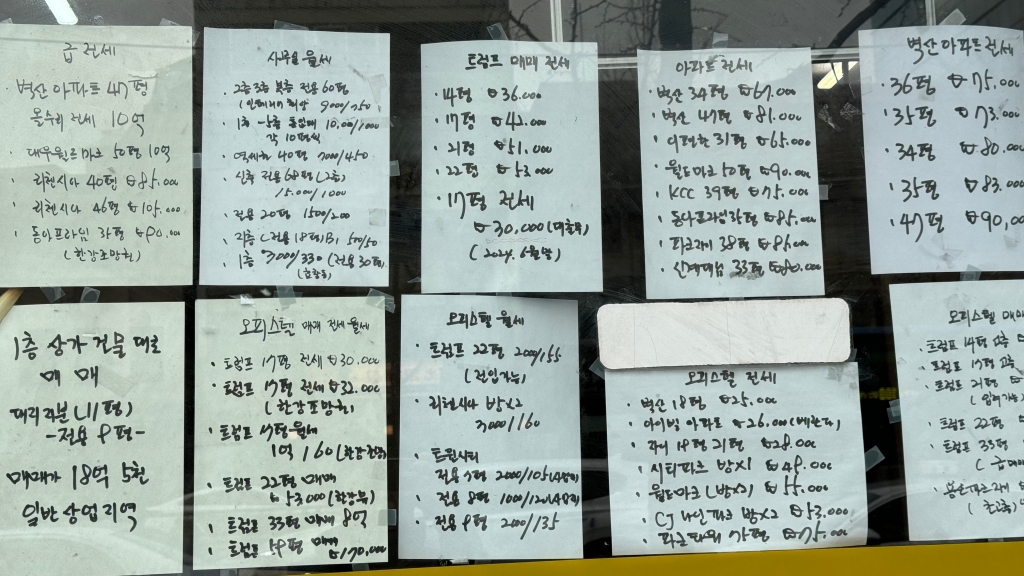 급 전세
· 벽산 아파트 47평
올수리 전세 10억
· 대우월드마크 50평 10억
· 리첸시아 40평 ₩85.000
· 리첸시아 46평 ₩105.000
· 동아프라임 37평 ₩90.000
(한강조망권)
사무실 월세
· 2층 3층 복층 전용 60평
9000/250
각 10평씩
40평 3000/450
· 신축 전용 68평 (2층)
15.000/1000
· 전용 20평 1500/200
· 지층 (전용 18평) B1 500/50
· 1층 7000/330 (전용 30평)
트럼프 매매 전세
· 14평 ₩36.000
· 17평 ₩42.000
· 21평 ₩51.000
· 22평 ₩53.000
· 17평 전세
₩30,000 (대출무)
(2024. 6월말)
아파트 전세
· 벽산 34평 ₩67.000
· 벽산 47평 ₩81.000
· 이편한 31평 ₩65.000
· 월드마크 50평 ₩90.000
· KCC 39평 ₩75.000
· 동아프라임 37평 ₩85.000
· 파크자이 38평 ₩86.000
· 신계대림 33평 ₩80.000
벽산 아파트 전세
· 36평 ₩75.000
· 35평 ₩73.000
· 34평 ₩80.000
· 35평 ₩83.000
· 47평 ₩90,000
1층 상가 건물 대로
매매
대지지분 (11평)
-전용 9평-
매매가 18억 5천
일반 상업 지역
오피스텔 매매 전세 월세
· 트럼프 17평 전세 ₩30.000
· 트럼프 17평 전세 ₩32.000
(한강조망권)
· 트럼프 17평 월세
1억/60 (한강전망)
· 트럼프 22평 매매
₩53.000 (한강뷰)
· 트럼프 33평 매매 8억
· 트럼프 59평 매매 ₩170,000
오피스텔 월세
· 트럼프 22평 2000/155
(전입가능)
· 리첸시아 방x2
3000/160
· 트윈시티
전용 7평 2000/105
· 전용 8평 1000/120
· 전용 9평 2000/135
오피스텔 전세
· 벽산 18평 ₩25.000
· 아이빌 아파트 ₩26.000 (베란다)
· 자이 18평 21평 ₩28.000
· 시티파크 방x1 ₩48.000
· 월드마크 (방x2) ₩55.000
· CJ 나인파크 방x2 ₩53.000
· 파크타워 27평 ₩75.000
오피스텔 매매
· 트럼프 14평 고층
· 트럼프 17평 고층
· 트럼프 21평
· 트럼프 22평
· 트럼프 33평
· 용산파크자이